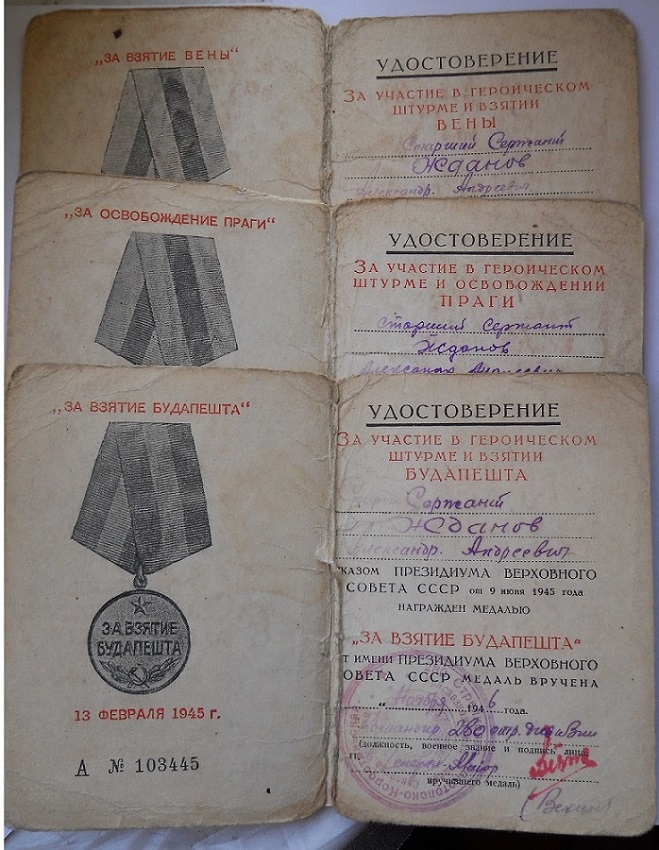 „ЗА ВЗЯТИЕ ВЕНЫ“
УДОСТОВЕРЕНИЕ
ЗА УЧАСТИЕ В ГЕРОИЧЕСКОМ
ШТУРМЕ И ВЗЯТИИ
ВЕНЫ
Старший Сержант
Жданов
Александр Андреевич
„ЗА ОСВОБОЖДЕНИЕ ПРАГИ“
УДОСТОВЕРЕНИЕ
ЗА УЧАСТИЕ В ГЕРОИЧЕСКОМ
ШТУРМЕ И ОСВОБОЖДЕНИИ
ПРАГИ
Старший Сержант
Жданов
Александр Андреевич
„ЗА ВЗЯТИЕ БУДАПЕШТА“
ЗА ВЗЯТИЕ
БУДАПЕШТА
13 ФЕВРАЛЯ 1945 г.
А № 103445
УДОСТОВЕРЕНИЕ
ЗА УЧАСТИЕ В ГЕРОИЧЕСКОМ
ШТУРМЕ И ВЗЯТИИ
БУДАПЕШТА
Сержант
Жданов
Александр Андреевич
КАЗОМ ПРЕЗИДИУМА ВЕРХОВНОГО
СОВЕТА СССР от 9 июня 1945 года
НАГРАЖДЕН МЕДАЛЬЮ
„ЗА ВЗЯТИЕ БУДАПЕШТА“
Т ИМЕНИ ПРЕЗИДИУМА ВЕРХОВНОГО
ОВЕТА СССР МЕДАЛЬ ВРУЧЕНА
Ноября 1946 года.
Командир стр.
(должность, военное звание и подпись лица,
Генерал-Майор
вручившего медаль)